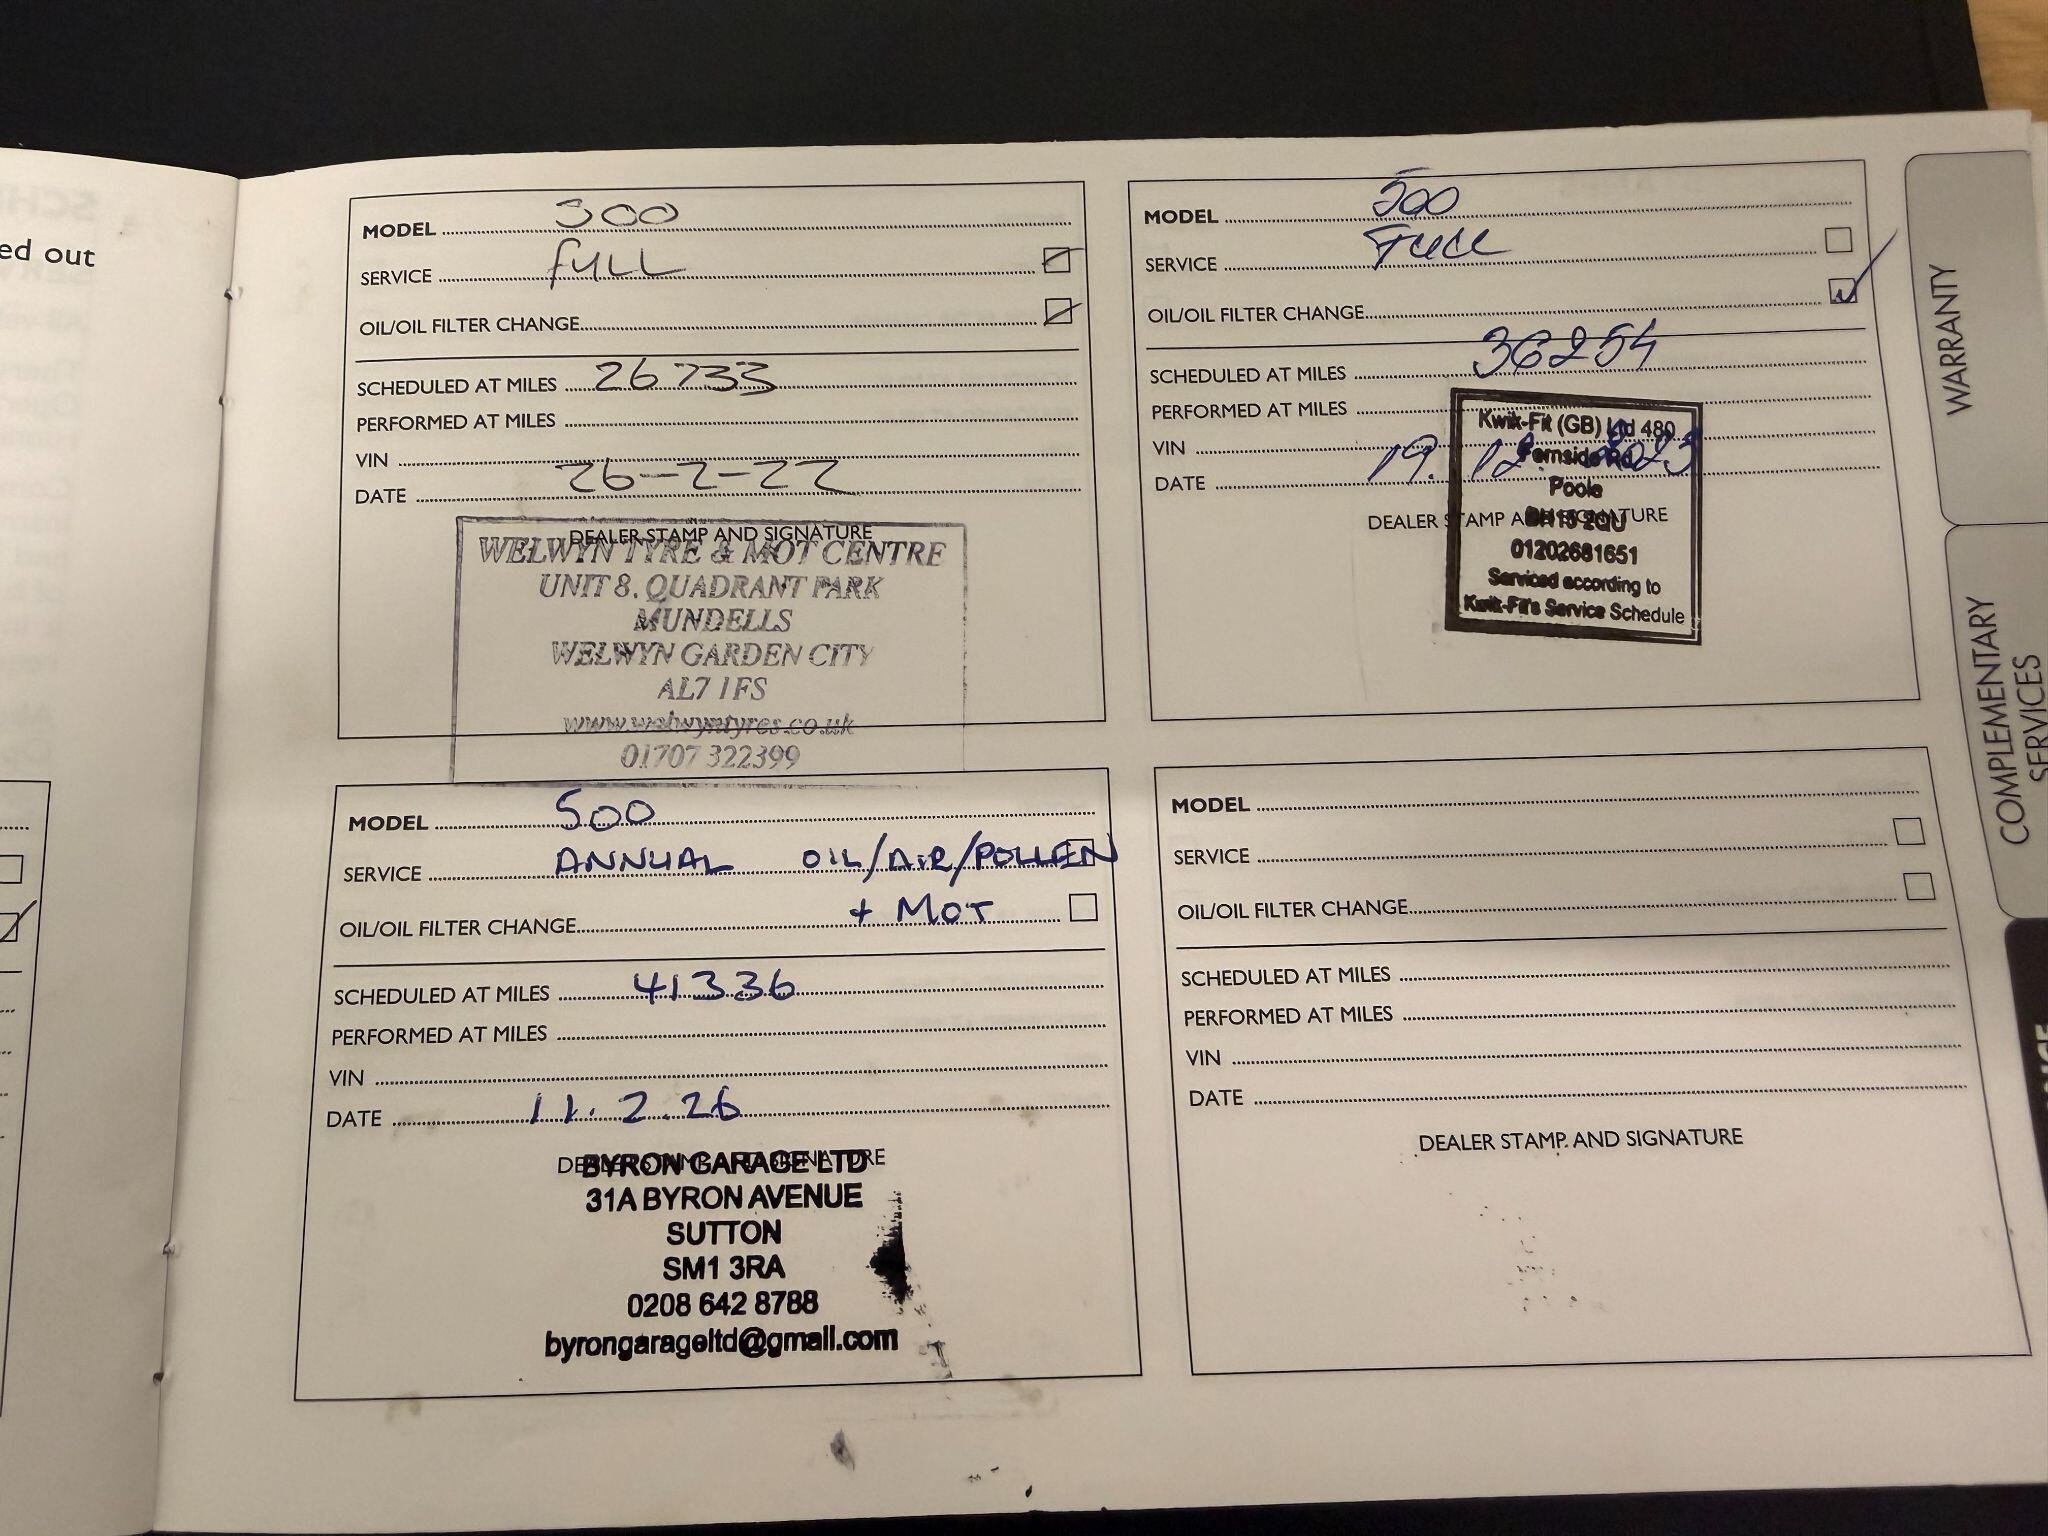 ed out
MODEL 500
SERVICE FULL
OIL/OIL FILTER CHANGE
SCHEDULED AT MILES 26733
PERFORMED AT MILES
VIN
DATE 26-2-22
DEALER STAMP AND SIGNATURE
WELWYN TYRE & MOT CENTRE
UNIT 8. QUADRANT PARK
MUNDELLS
WELWYN GARDEN CITY
AL7 1FS
www.welwyntyres.co.uk
01707 322399
MODEL 500
SERVICE Full
OIL/OIL FILTER CHANGE
SCHEDULED AT MILES 36254
PERFORMED AT MILES
VIN
DATE 19.12.2023
DEALER STAMP AND SIGNATURE
Kwik-Fit (GB) Ltd 480
Fernside Rd
Poole
BH15 2QU
01202681651
Serviced according to
Kwik-Fit's Service Schedule
MODEL 500
SERVICE ANNUAL OIL/AIR/POLLEN
OIL/OIL FILTER CHANGE + MOT
SCHEDULED AT MILES 41336
PERFORMED AT MILES
VIN
DATE 11.2.26
DEALER STAMP AND SIGNATURE
BYRON GARAGE LTD
31A BYRON AVENUE
SUTTON
SM1 3RA
0208 642 8788
byrongarageltd@gmail.com
MODEL
SERVICE
OIL/OIL FILTER CHANGE
SCHEDULED AT MILES
PERFORMED AT MILES
VIN
DATE
DEALER STAMP AND SIGNATURE
WARRANTY
COMPLEMENTARY
SERVICES